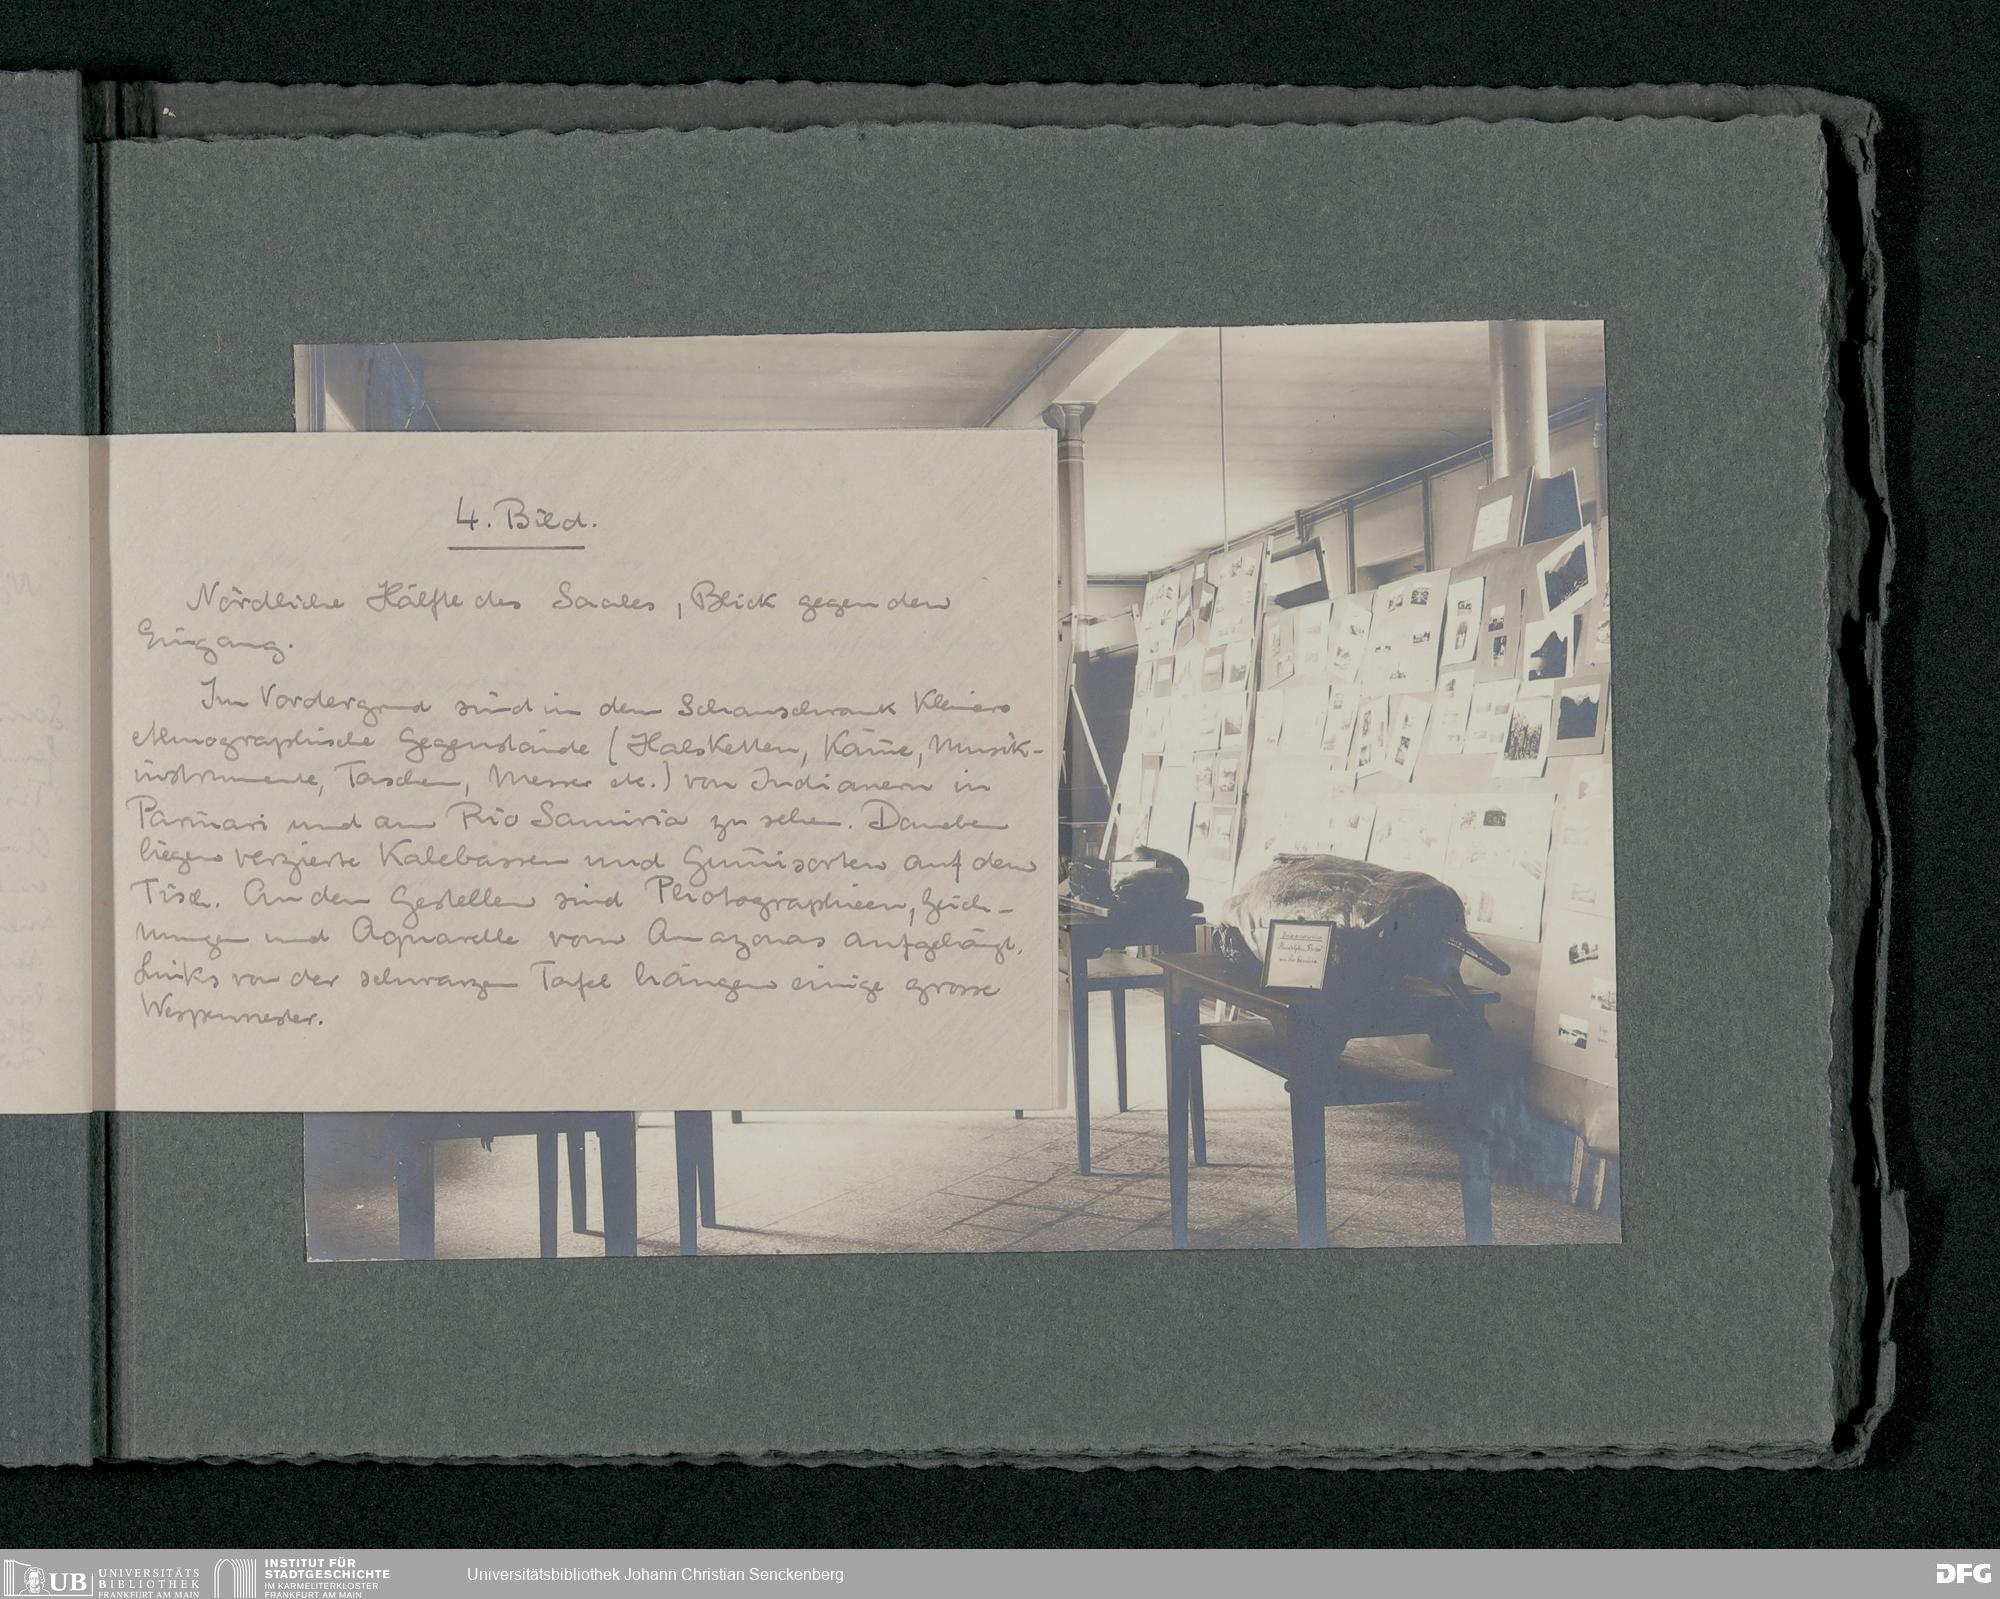 4. Bild.
Nördliche Hälfte des Saales, Blick gegen den
Eingang.
Im Vordergrund sind in dem Schauschrank kleinere
ethnographische Gegenstände (Halsketten, Käm̄e, Musik-
instrumente, Taschen, Messer etc.) von Indianern in
Parinari und am Rio Samiria zu sehen. Daneben
liegen verzierte Kalebassen und Gum̄isorten auf dem
Tisch. An den Gestellen sind Photographieen, Zeich-
nungen und Aquarelle vom Amazonas aufgehängt.
Links von der schwarzen Tafel hängen einige grosse
Wespennester.
UB UNIVERSITÄTS
BIBLIOTHEK
FRANKFURT AM MAIN
INSTITUT FÜR
STADTGESCHICHTE
IM KARMELITERKLOSTER
FRANKFURT AM MAIN
Universitätsbibliothek Johann Christian Senckenberg
DFG